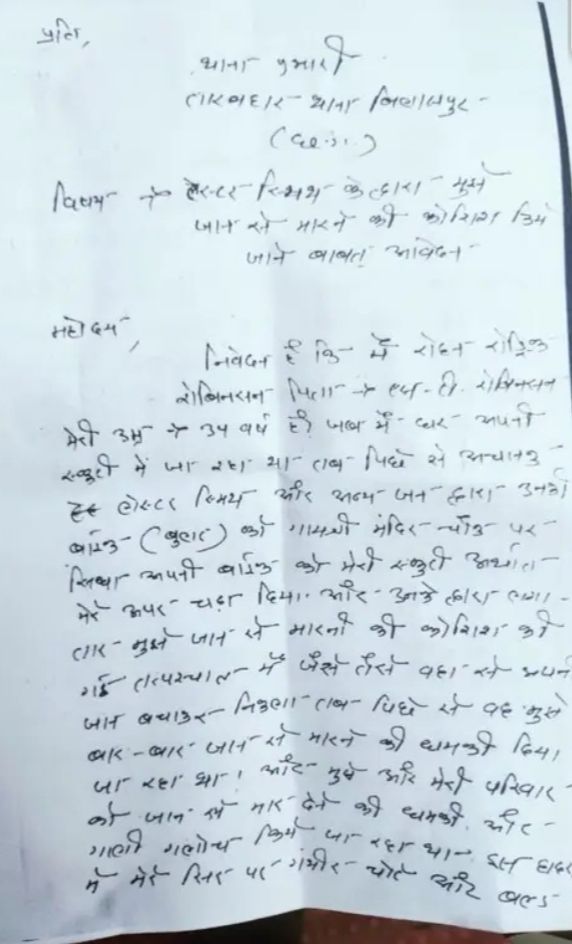 प्रति,
थाना प्रभारी
तारबहार थाना बिलासपुर
(छ.ग.)
विषय → स्मिथ के द्वारा मुझे
जान से मारने की कोशिश किये
जाने बाबत् आवेदन
महोदय,
निवेदन है कि मैं रोहन रोड्रिक
रोबिनसन पिता → एस. टी. रोबिनसन
मेरी उम्र → 34 वर्ष है। जब मैं घर अपनी
स्कुटी में जा रहा था तब पिछे से अचानक
स्मिथ और अन्य जन द्वारा उनकी
बाईक (बुलट) को गायत्री मंदिर चौक पर
सिधा अपनी बाईक को मेरी स्कुटी अर्थात
मेरे ऊपर चढ़ा दिया। और उनके द्वारा लगा-
तार मुझे जान से मारनी की कोशिश की
गई तत्पश्चात मैं जैसे तैसे वहा से अपनी
जान बचाकर निकला तब पिछे से वह मुझे
बार-बार जान से मारने की धमकी दिया
जा रहा था। और मुझे और मेरी परिवार
को जान से मार देने की धमकी और
गाली गलोच किये जा रहा था इस हादसे
में मेरे सिर पर गंभीर चोटे और